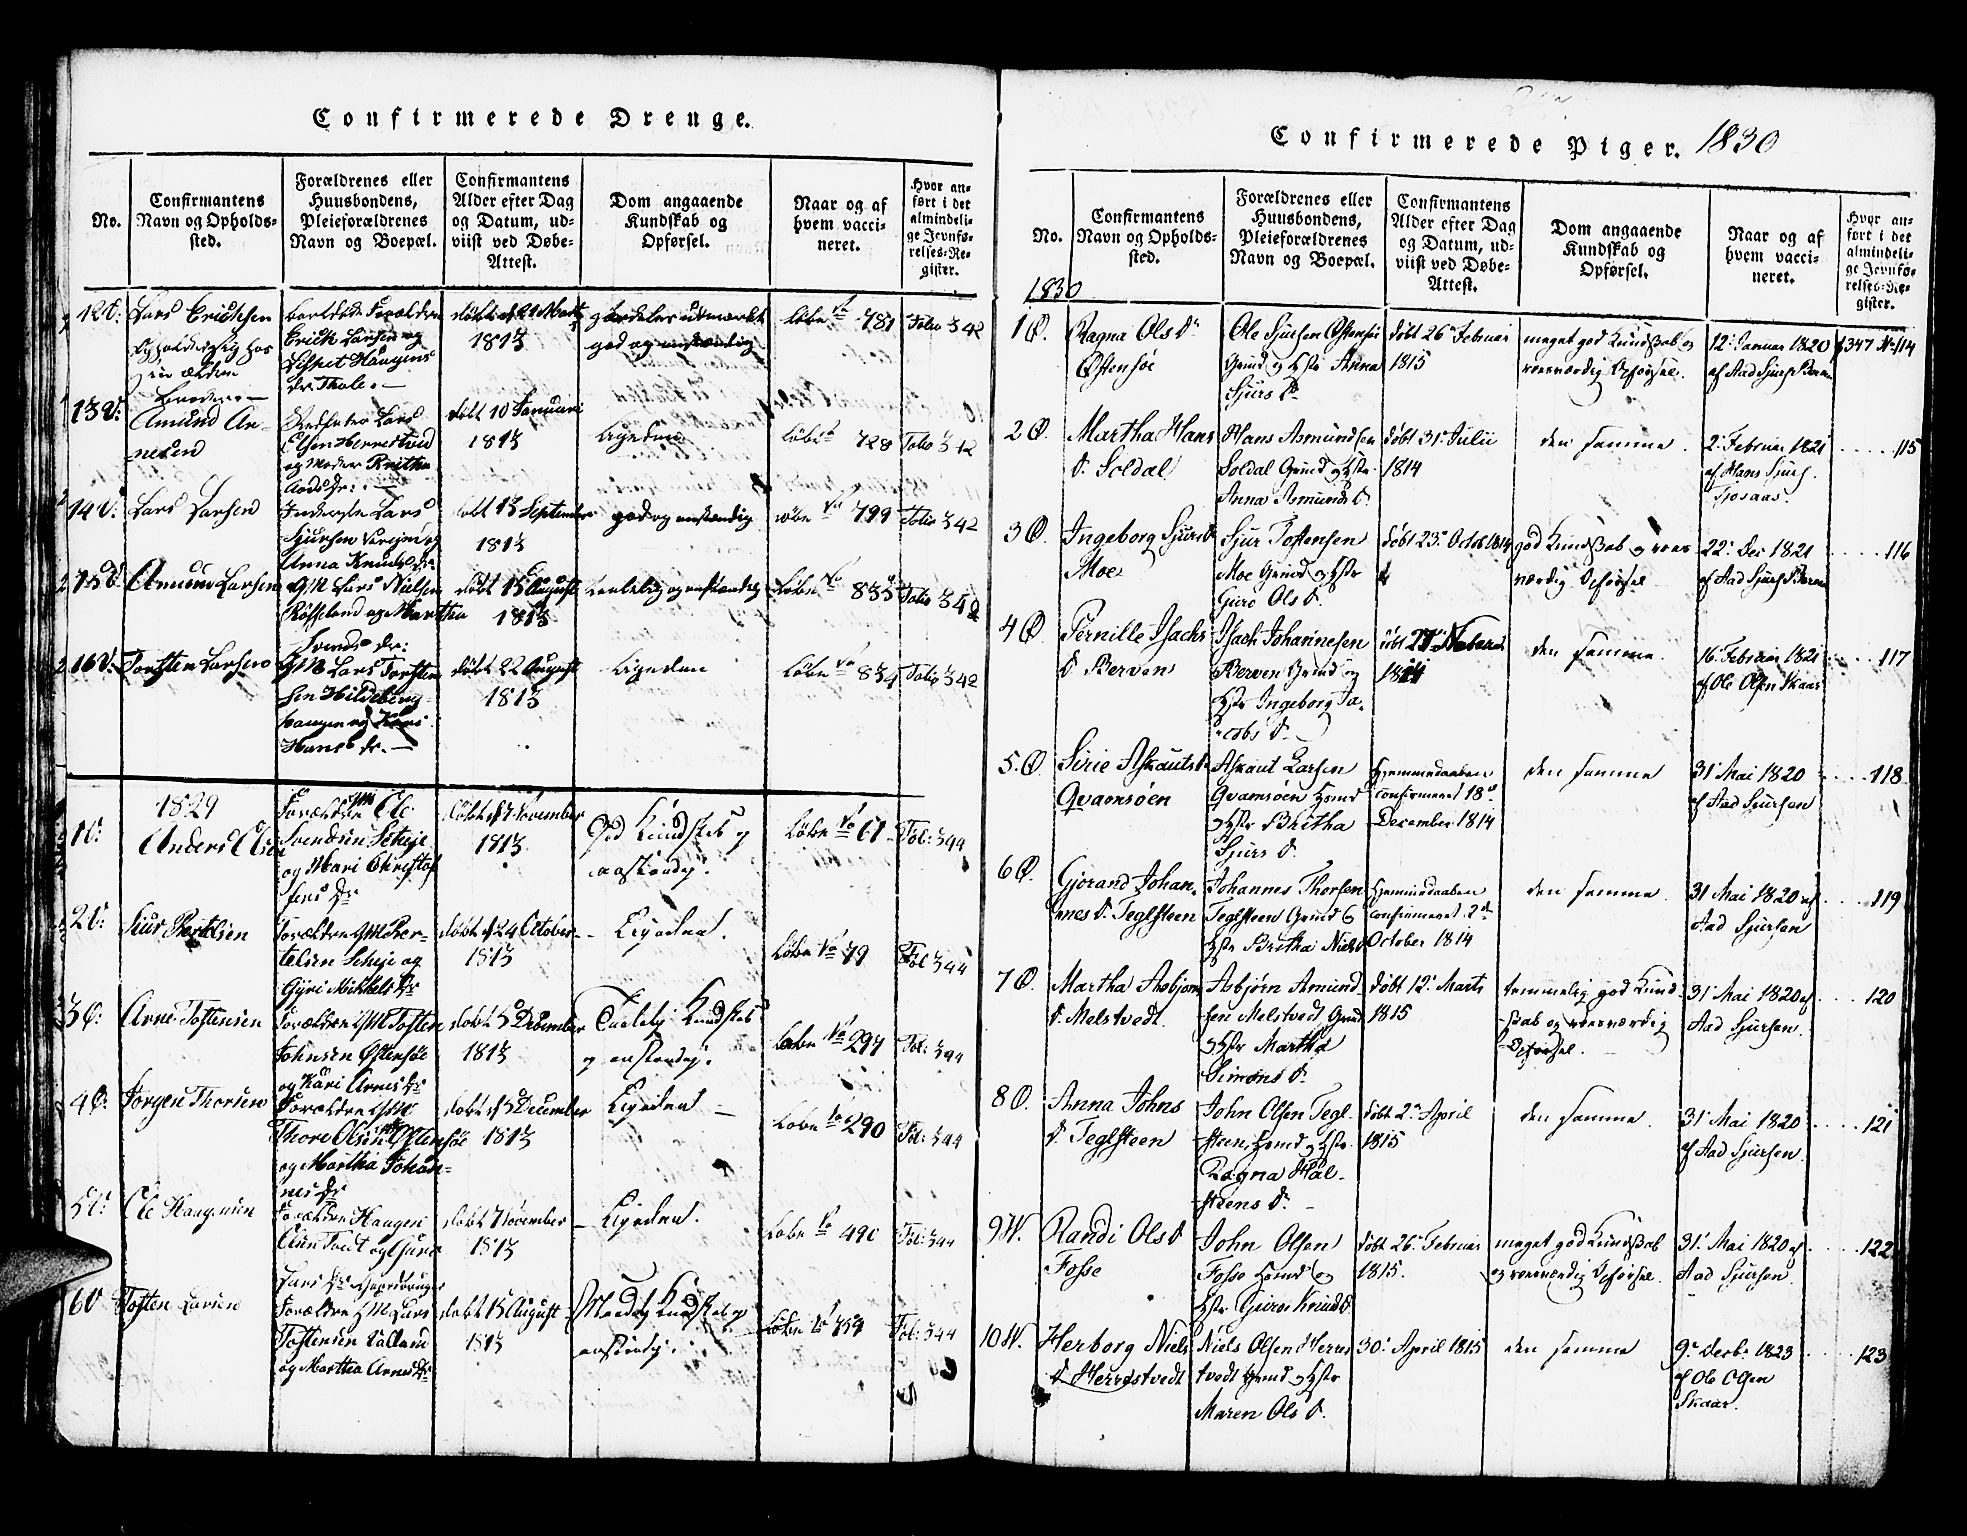 Confirmerede Drenge.
No.
Confirmantens
Navn og Opholds-
sted.
Forældrenes eller
Huusbondens,
Pleieforældrenes
Navn og Boepæl.
Confirmantens
Alder efter Dag
og Datum, ud-
viist ved Døbe-
Attest.
Dom angaaende
Kundskab og
Opførsel.
Naar og af
hvem vacci-
neret.
Hvor an-
ført i det
almindeli-
ge Jevnfø-
relses-Re-
gister.
12
Lars Erichsen
Erich Larsen og
døbt d 21 Marti
1813
god og anstændig
Løbe No 781
Folio 342
13
Amund Ar-
nesen
døbt 10 Januari
1813
Ligeden
Løbe No 728
Folio 342
14
Lars Larsen
Lars
Sjursen
Anna Knuds Dr
døbt 13 September
1813
god og anstændig
Løbe No 799
Folio 342
15
Amund Larsen
GM Lars Nielsen
Røsseland og Martha
Svends Dr:
døbt 15 August
1813
Løbe No 835
Folio 342
16
Torsten Larsen
GM Lars Torsten
sen Hildeberg
Hans Dr.
døbt 22 August
1813
Ligeden
Løbe No 834
Folio 342
1829
1
Anders Olsen
Forældre GM Ole
Svendsen Scheje
og Mari Christof
fers Dr
døbt d 7 November
1813
God Kundskab og
anstændig.
Løbe No 61
Fol: 344
2
Siur Bertelsen
Forældre GM Ber-
telsen Scheje og
Gyri Mikkels Dr
døbt d 24 October
1813
Ligeden.
Løbe No 79
Fol 344
3
Arne Tostensen
Forældre GM Tosten
Johnsen Østensøe
og Kari Arnes Dr
døbt 5 December
1813
Kundskab
og anstændig.
Løbe No 297
Fol: 344
4
Jørgen Thorsen
Forældre GM
Thore Olsen Østensøe
og Martha Johan-
nes Dr
døbt d 5 December
1813
Ligeden
Løbe No 290
Fol: 344
5
Ole Haagensen
Forældre Haagen
Lars Dr
døbt 7 November
1813
Ligeden.
Løbe No 490
Fol: 344
6
Tosten Larsen
Forældre GM Lars
Tostensen
og Martha Arnes Dr
døbt 15 August
1813
Kundskab og
anstændig.
Løbe No
Fol: 344
Confirmerede Piger. 1830
No.
Confirmantens
Navn og Opholds-
sted.
Forældrenes eller
Huusbondens,
Pleieforældrenes
Navn og Boepæl.
Confirmantens
Alder efter Dag
og Datum, ud-
viist ved Døbe-
Attest.
Dom angaaende
Kundskab og
Opførsel.
Naar og af
hvem vacci-
neret.
Hvor an-
ført i det
almindeli-
ge Jevnfø-
relses-Re-
gister.
1830
1 Ø.
Ragna Ols Dr
Østensøe
Ole Sjursen Østensøe
Gmd og Hstr Anna
Sjurs Dr
døbt 26 Februar
1815
meget god Kundskab og
roesværdig Opførsel.
12 Januar 1820
af Aad Sjurs
f 347 No 114
2 Ø.
Martha Hans
D. Soldal
Hans Asmundsen
Soldal Gmd og Hstr
Anna Asmunds D.
døbt 31 Julii
1814
den samme.
2 Februar 1821
af Hans Sjurs.
Tjosaas.
115
3 Ø.
Ingeborg Sjurs D
Moe
Sjur Tostensen
Moe Gmd og Hstr
Guro Ols D.
døbt 23 Octob 1814
god Kundskab og roes
værdig Opførsel
22 Dec 1821
af Aad Sjurs
116
4 Ø
Pernille Isachs
D Berven
Isach Johannesen
Berven Gmd og
Hstr Ingeborg Ja-
cobs D.
1814
den samme.
16 Februar 1821
af Ole Olsen Skaar
117
5. Ø.
Sirie Askauts D
Qvamsøen
Askaut Larsen
Qvamsøen Hsmd
og Hstr Britha
Sjurs D.
Hjemmedaaben
confirmeret 18de
December 1814
den samme
31 Mai 1820
af Aad Sjursen
118.
6 Ø.
Gjorand Johan-
nes D. Teglsteen
Johannes Thorsen
Teglsteen Gmd og
Hstr Britha Niels D
Hjemmedaaben
confirmeret 2de
October 1814
den samme.
31 Mai 1820 af
Aad Sjursen
119
7 Ø.
Martha Asbjørn
D. Melstvedt.
Asbjørn Amund-
sen Melstvedt Gmd
og Hstr Martha
Simons D.
døbt 12 Marts
1815
temmelig god Kund-
skab og roesværdig
Opførsel.
31 Mai 1820 af
Aad Sjursen.
120
8 Ø.
Anna Johns
D. Teglsteen
John Olsen Tegl-
steen, Hsmd og Hstr
Ragna Hal-
steens D.
døbt 2 April
1815
den samme.
31 Mai 1820
af Aad Sjursen.
121
9 W.
Randi Ols D
Fosse
John Olsen
Fosse Hsmd og
Hstr Guro Knuds D
døbt 26 Februar
1815.
meget god Kundskab
og roesværdig Opførsel.
31 Mai 1820 af
Aad Sjursen.
122
10 W.
Herborg Niels
D. Herrestvedt
Niels Olsen Herres
tvedt Gmd og Hstr
Maren Ols D.
30 April 1815
den samme
9 Decbr 1823
af Ole Olsen
Skaar.
123